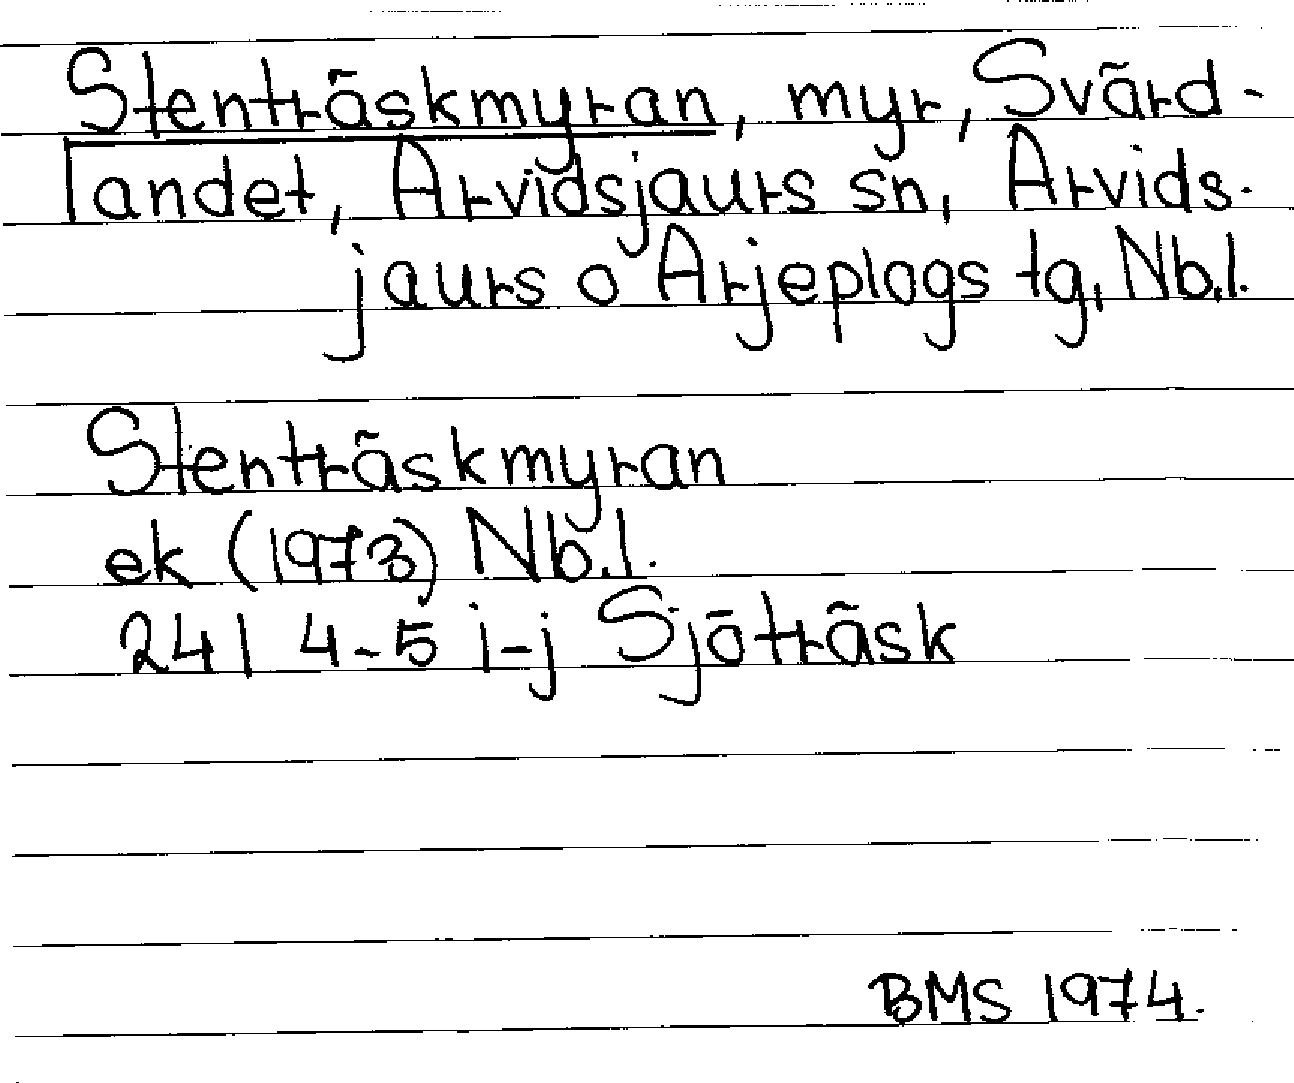 Stenträskmyran, myr, Svärd-
landet, Arvidsjaurs sn, Arvids-
jaurs o Arjeplogs tg, Nb.l.
Stenträskmyran
ek (1973) Nb.l.
24 I 4-5 i-j Sjöträsk
BMS 1974.